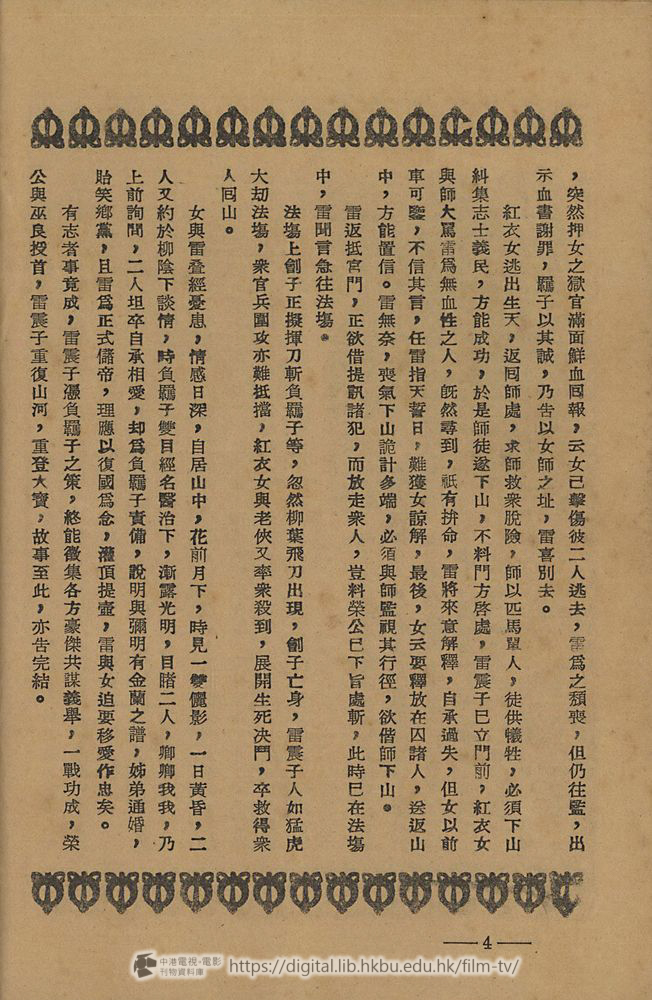 ，突然押女之獄官滿面鮮血囘報，云女已擊傷彼二人逃去，雷爲之頹喪，但仍往監，出
示血書謝罪，羈子以其誠，乃告以女師之址，雷喜別去。
紅衣女逃出生天，返囘師處，求師救衆脫險，師以匹馬單人，徒供犧牲，必須下山
糾集志士義民，方能成功，於是師徒遂下山，不料門方啓處，雷震子已立門前，紅衣女
與師大駡雷爲無血性之人，旣然尋到，祇有拚命，雷將來意解釋，自承過失，但女以前
車可鑒，不信其言，任雷指天誓日，難獲女諒解，最後，女云要釋放在囚諸人，送返山
中，方能置信。雷無奈，喪氣下山詭計多端，必須與師監視其行徑，欲偕師下山。
雷返抵宮門，正欲借提訊諸犯，而放走衆人，豈料榮公已下旨處斬，此時已在法塲
中，雷聞言急往法塲。
法塲上劊子正擬揮刀斬負羈子等，忽然柳葉飛刀出現，劊子亡身，雷震子人如猛虎
大刼法塲，衆官兵圍攻亦難抵擋，紅衣女與老俠又率衆殺到，展開生死决鬥，卒救得衆
人囘山。
女與雷叠經憂患，情感日深，自居山中，花前月下，時見一雙儷影，一日黃昏，二
人又約於柳陰下談情，時負羈子雙目經名醫治下，漸露光明，目睹二人，卿卿我我，乃
上前詢問，二人坦卒自承相愛，却爲負羈子責備，說明與彌明有金蘭之譜，姊弟通婚，
貽笑鄉黨，且雷爲正式儲帝，理應以復國爲念，灌頂提壺，雷與女迫要移愛作忠矣。
有志者事竟成，雷震子憑負羈子之策，終能徵集各方豪傑共謀義舉，一戰功成，榮
公與巫良授首，雷震子重復山河，重登大寶，故事至此，亦告完結。
4
中港電視·電影
刊物資料庫
https://digital.lib.hkbu.edu.hk/film-tv/